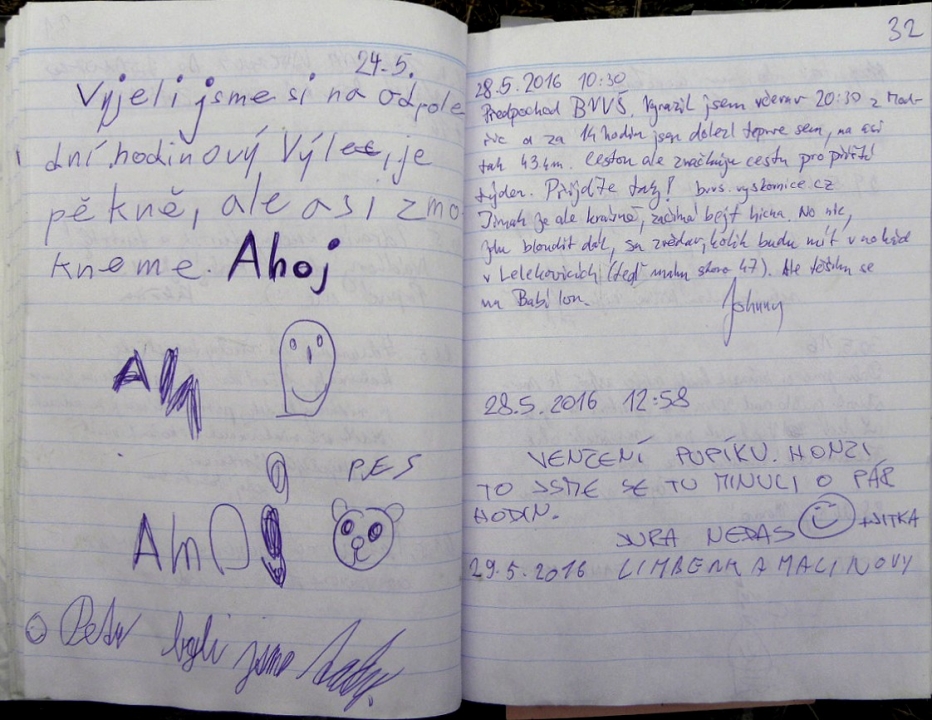 24.5.
Vyjeli jsme si na odpole
dní hodinový výlet, je
pěkně, ale asi zmo
kneme. Ahoj
PES
Ahoj
Petr byli jsme
32
28.5.2016 10:30
Předpochod BVVŠ. Vyrazil jsem včera v 20:30 z
a za 14 hodin jsem dolezl teprve sem, na asi
tak 43 km. Cestou ale značkuju cestu pro příští
týden. Přijďte taky! bvvs.vyskomice.cz
Jinak je ale krásně, začíná bejt hicna. No nic,
jdu bloudit dál, sem zvědav, kolik budu mít v nohách
v Lelekovicích (teď mám skoro 47). Ale těším se
na Babí lom.
Johnny
28.5.2016 12:58
PUPÍKU. HONZI
TO JSME SE TU MINULI O PÁR
HODIN.
JURA NEDAS + JITKA
29.5.2016 MALINOVY